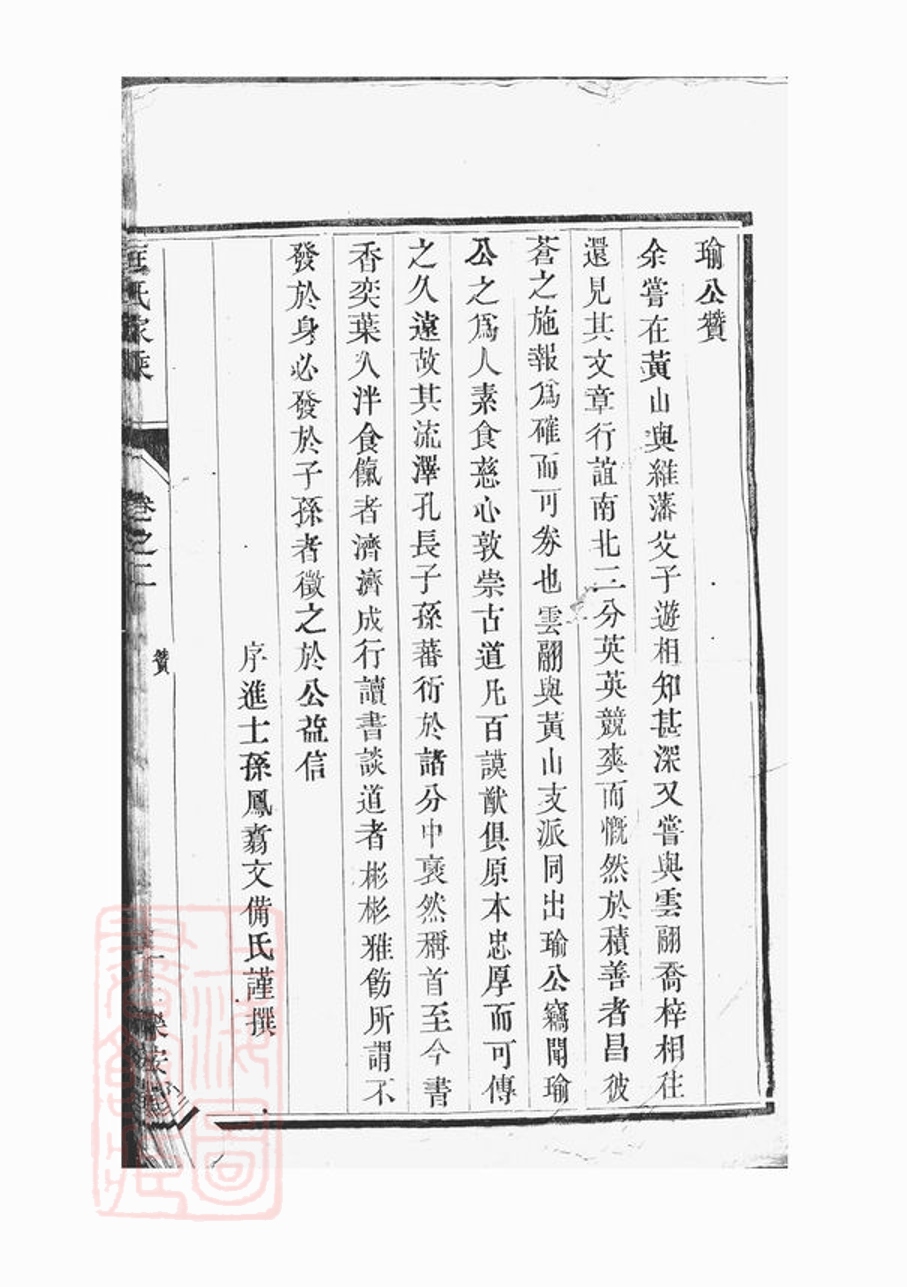 瑜公贊
余嘗在黃山與維藩父子遊相知甚深又嘗與雲翮喬梓相往
還見其文章行誼南北二分英英競爽而慨然於積善者昌彼
蒼之施報爲確而可券也雲翮與黃山支派同出瑜公竊聞瑜
公之爲人素食慈心敦崇古道凡百謨猷俱原本忠厚而可傳
之久遠故其流澤孔長子孫蕃衍於諸分中裒然稱首至今書
香奕葉入泮食餼者濟濟成行讀書談道者彬彬雅飭所謂不
發於身必發於子孫者徵之於公益信
序進士孫鳳翥文備氏謹撰
汪氏家乘
卷之二
贊
樂安